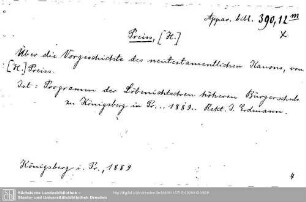 Appar. litt. 390, 12 m
x
Preiss, [H.]
Über die Vorgeschichte des neutestamentlichen Kanons, von
[H.] Preiss.
Ist: Programm der Löbenichtschen höheren Bürgerschule
zu Königsberg in Pr... 1889. Rekt. Erdmann.
Königsberg i. Pr., 1889
4